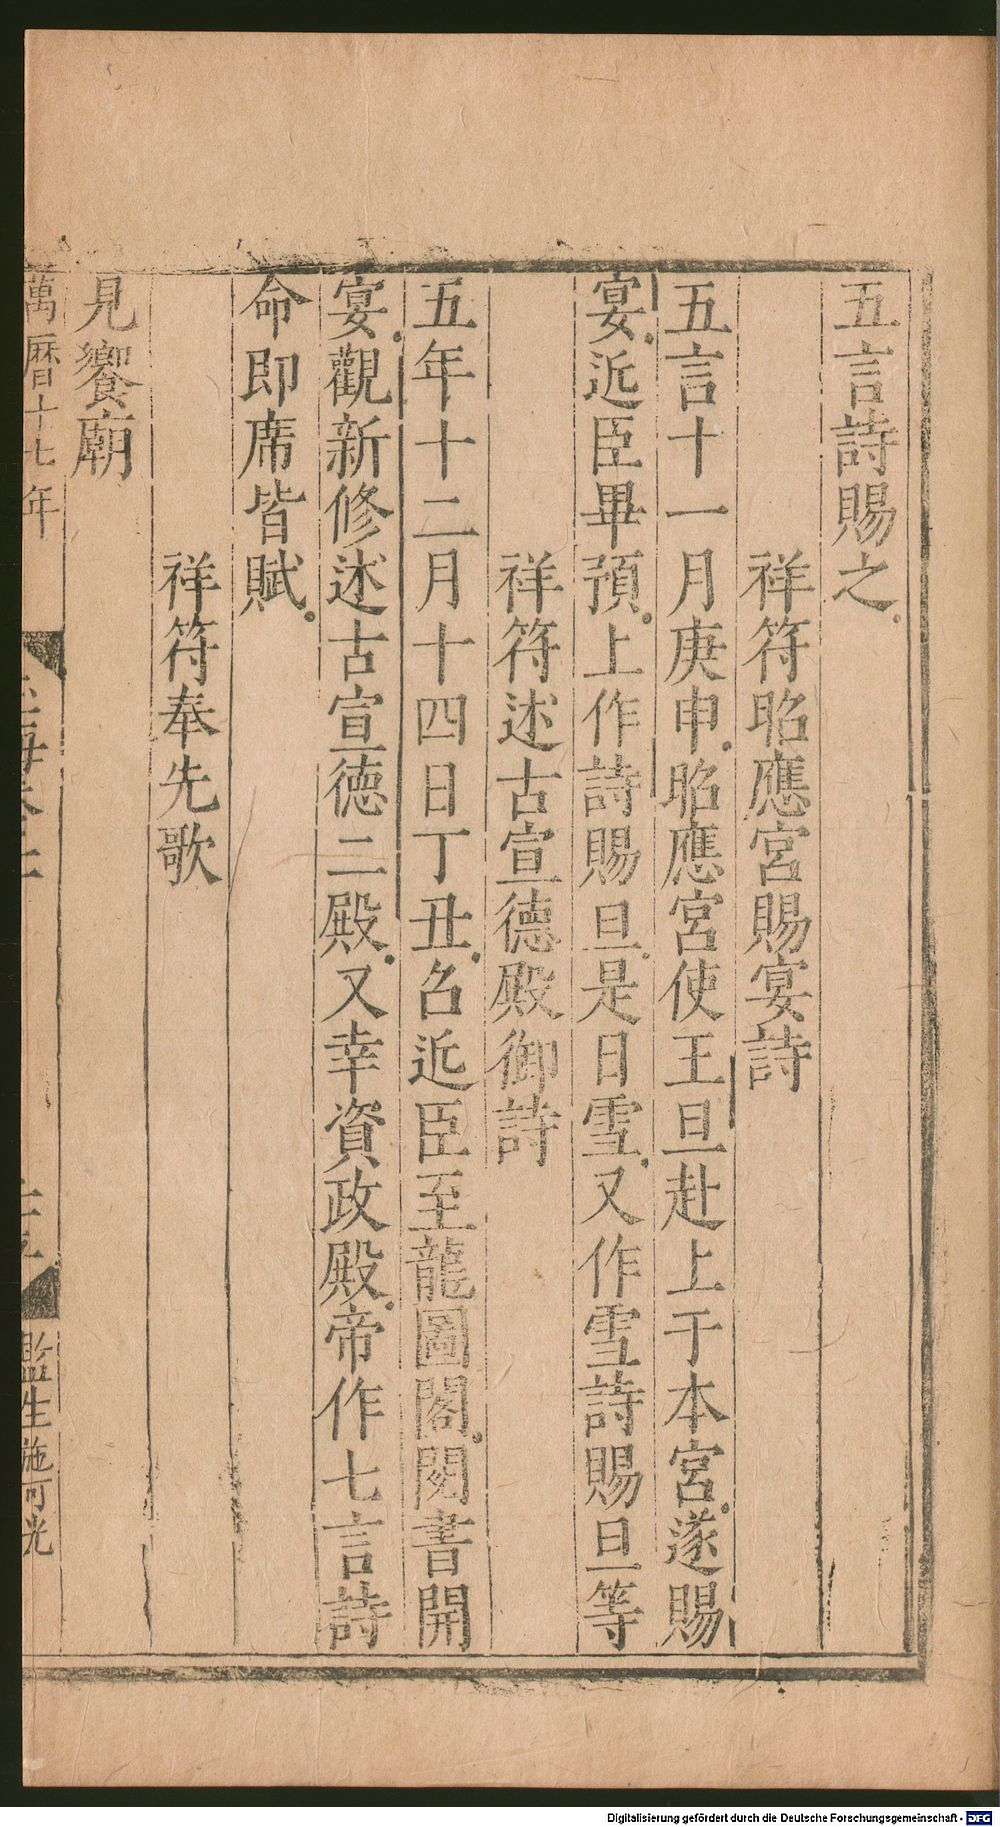 五言詩賜之
祥符昭應宮賜宴詩
五言十一月庚申昭應宮使王旦赴上于本宮遂賜
宴近臣畢預上作詩賜旦是日雪又作雪詩賜旦等
祥符述古宣德殿御詩
五年十二月十四日丁丑名近臣至龍圖閣閱書開
宴觀新修述古宣德二殿又幸資政殿帝作七言詩
命即席皆賦
祥符奉先歌
見饗廟
萬曆十七年
監生施可光
Digitalisierung gefördert durch die Deutsche Forschungsgemeinschaft - DFG